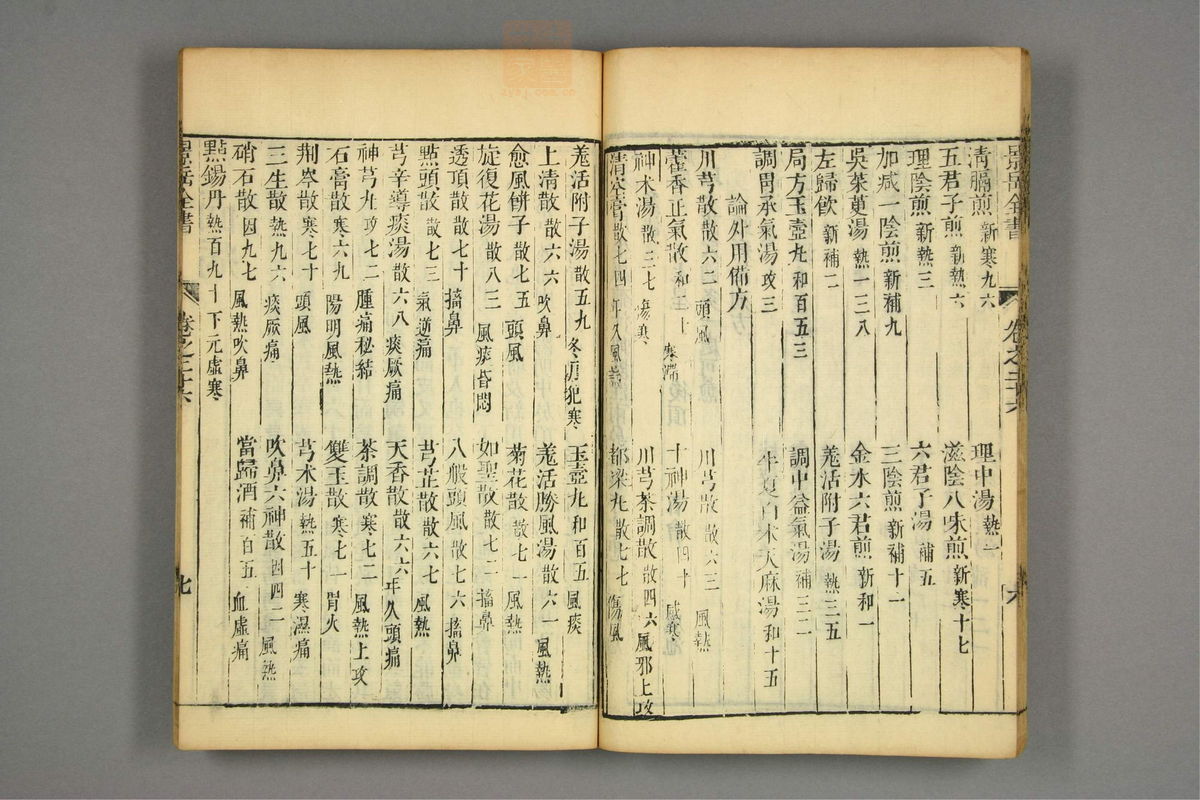 景岳全書 卷之二十六 六
清膈煎 新寒九六 理中湯 熱一
五君子煎 新熱六 滋陰八味煎 新寒十七
理陰煎 新熱三 六君子湯 補五
加減一陰煎 新補九 三陰煎 新補十一
吳茱萸湯 熱一三八 金水六君煎 新和一
左歸飲 新補二 羗活附子湯 熱三五
局方玉壺丸 和百五三 調中益氣湯 補三二
調胃承氣湯 攻三 半夏白朮天麻湯 和十五
論外用備方
川芎散 散六二 頭風 川芎散 散六三 風熱
藿香正氣散 和二十 寒滯 十神湯 散四十 感寒
神朮湯 散三七 傷寒 川芎茶調散 散四六 風邪上攻
清空膏 散七四 年久風熱 都梁丸 散七七 傷風
羗活附子湯 散五九 冬月犯寒 玉壺丸 和百五 風痰
上清散 散六六 吹鼻 羗活勝風湯 散六一 風熱
愈風餅子 散七五 頭風 菊花散 散七一 風熱
旋復花湯 散八三 風痰昏悶 如聖散 散七二 搐鼻
透頂散 散七十 搐鼻 八般頭風 散七六 搐鼻
點頭散 散七三 氣逆痛 芎芷散 散六七 風熱
芎辛導痰湯 散六八 痰厥痛 天香散 散六六 年久頭痛
神芎丸 攻七二 腫痛秘結 茶調散 寒七二 風熱上攻
石膏散 寒六九 陽明風熱 雙玉散 寒七一 胃火
荆芩散 寒七十 頭風 芎朮湯 熱五十 寒濕痛
三生散 熱九六 痰厥痛 吹鼻六神散 因四二 風熱
硝石散 因九七 風熱吹鼻 當歸酒 補百五 血虛痛
點錫丹 熱百九十 下元虛寒
景岳全書 卷之二十六 七